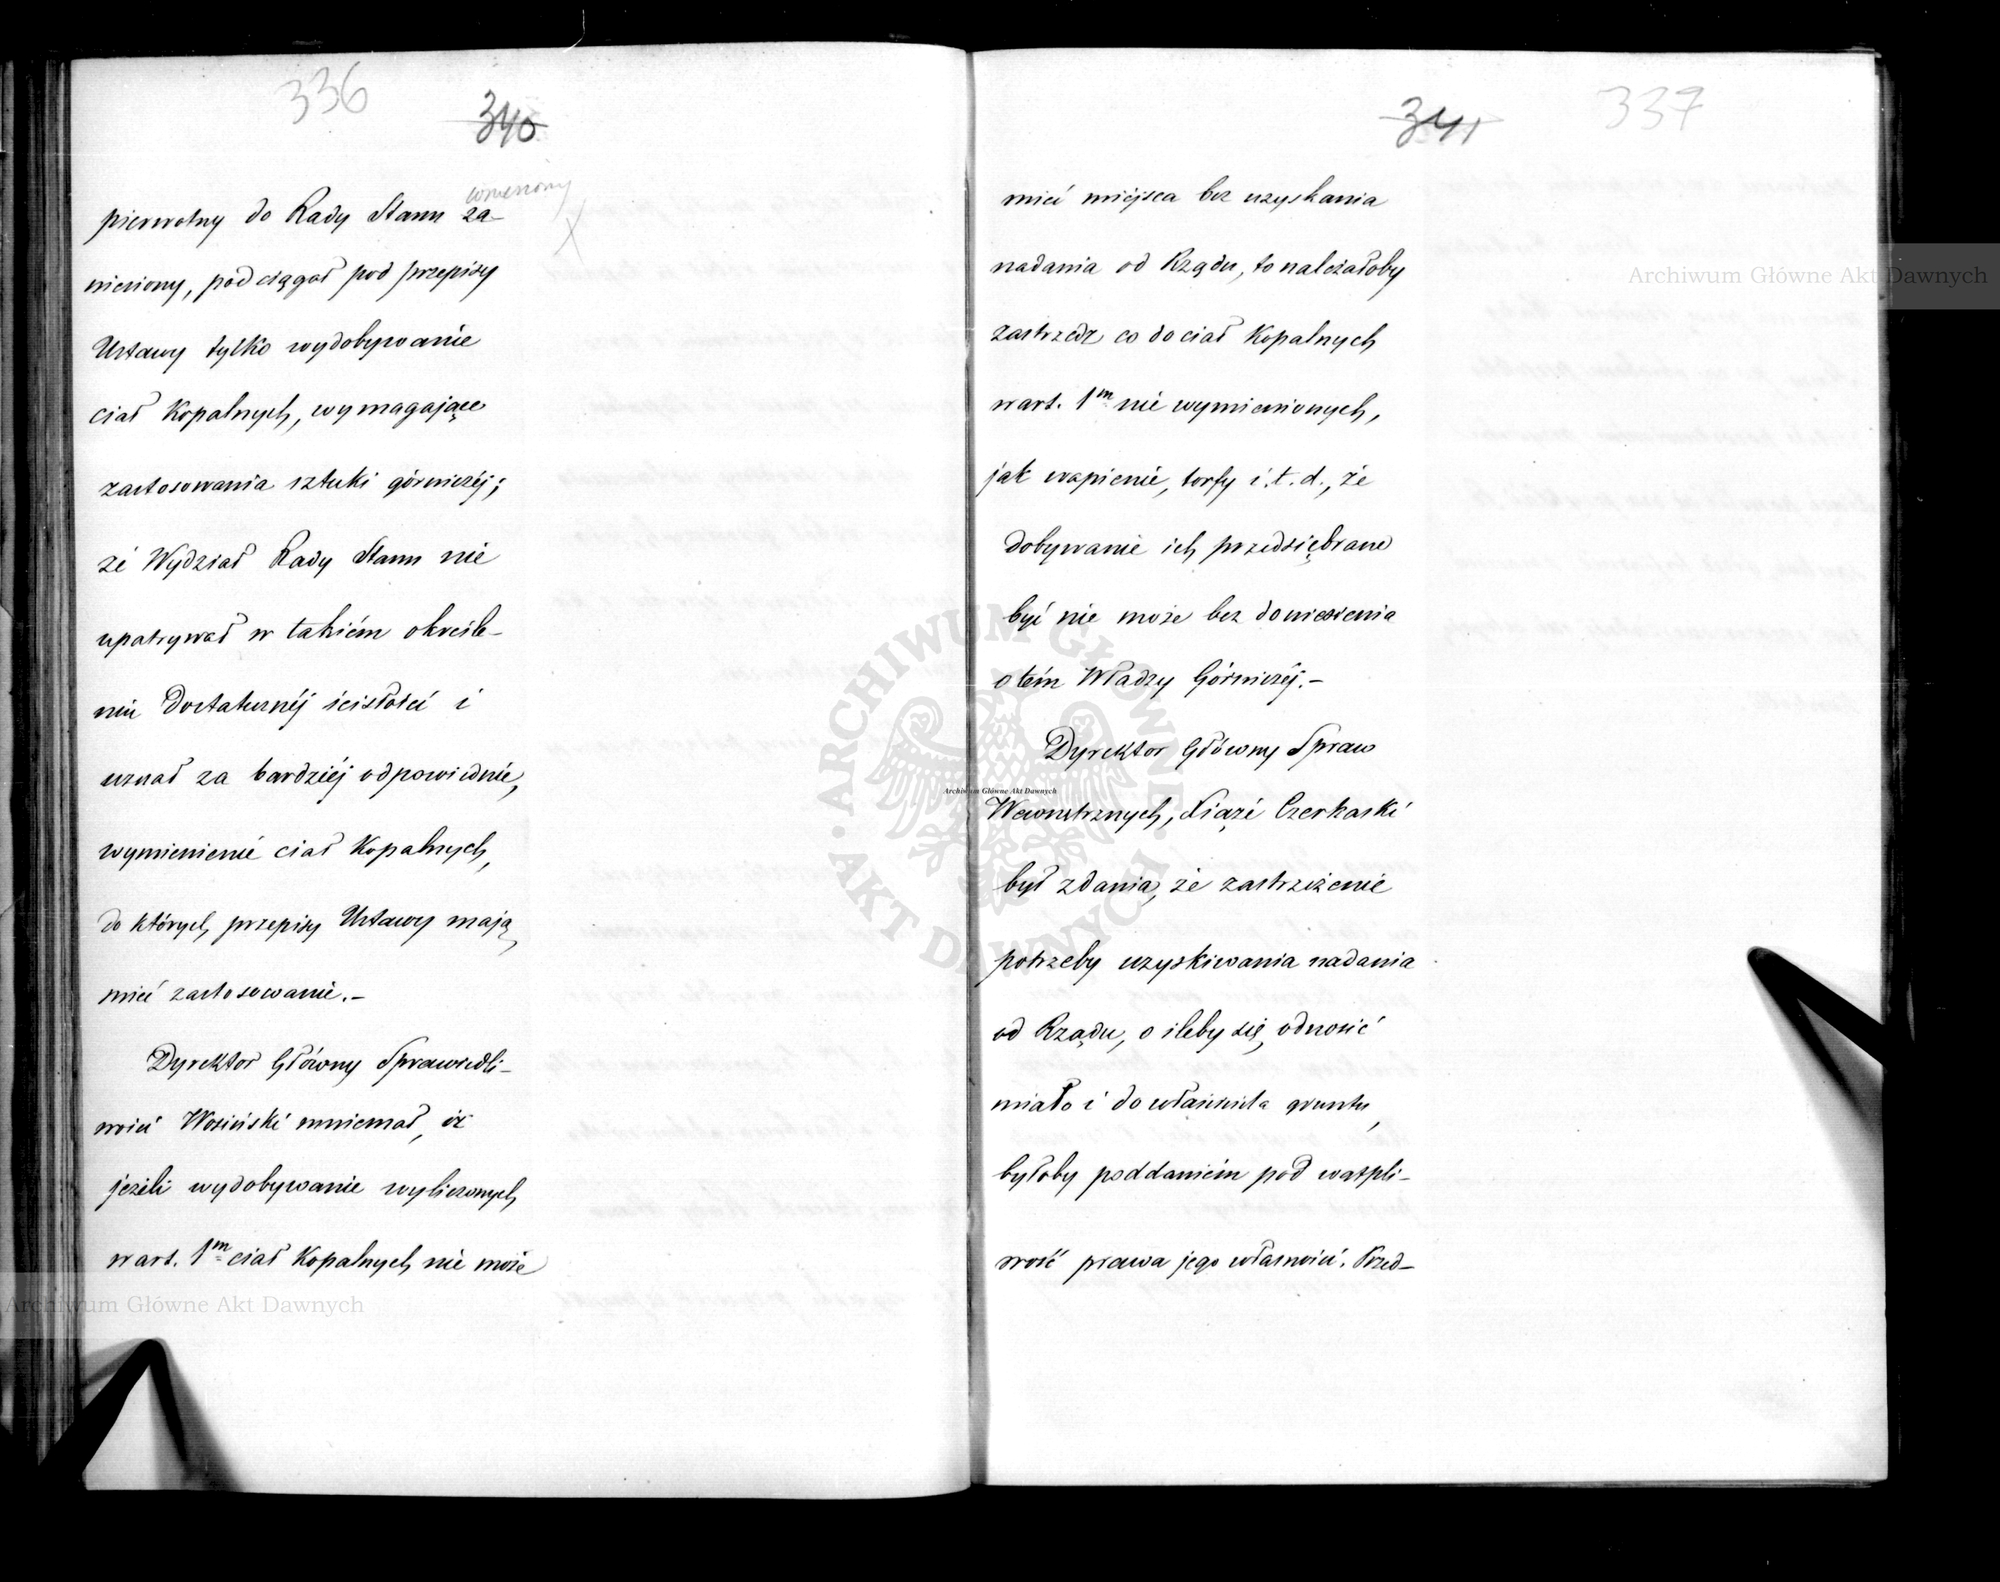 336
340
wniesiony
pierwotny do Rady Stanu za-
niesiony, podciągał pod przepisy
Ustawy tylko wydobywanie
ciał Kopalnych, wymagające
zastosowania sztuki górniczéj;
że Wydział Rady Stanu nie
upatrywał w takiém określe-
niu Dostatecznéj ścisłości i
uznał za bardziéj odpowiednie,
wymienienie ciał Kopalnych,
do których przepisy Ustawy mają
mieć zastosowanie.-
Dyrektor Główny Sprawiedli-
wości Wosiński mniemał, iż
jeżeli wydobywanie wyliczonych
w art. 1m ciał Kopalnych nie może
341
337
mieć miéjsca bez uzyskania
nadania od Rządu, to należałoby
zastrzedz co do ciał Kopalnych
w art. 1m nie wymienionych,
jak wapienie, torfy i.t.d., że
dobywanie ich przedsiębrane
być nie może bez doniesienia
o tém Władzy Górniczéj.-
Dyrektor Główny Spraw
Wewnętrznych, Xiąże Czerkaski
był zdania, że zastrzeżenie
potrzeby uzyskiwania nadania
od Rządu, o ileby się odnosić
miało i do właściciela gruntu,
byłoby poddaniém pod wątpli-
wość prawa jego własności. Przed-
Archiwum Główne Akt Dawnych
Archiwum Główne Akt Dawnych
Archiwum Główne Akt Dawnych
ARCHIWUM GŁÓWNE AKT DAWNYCH